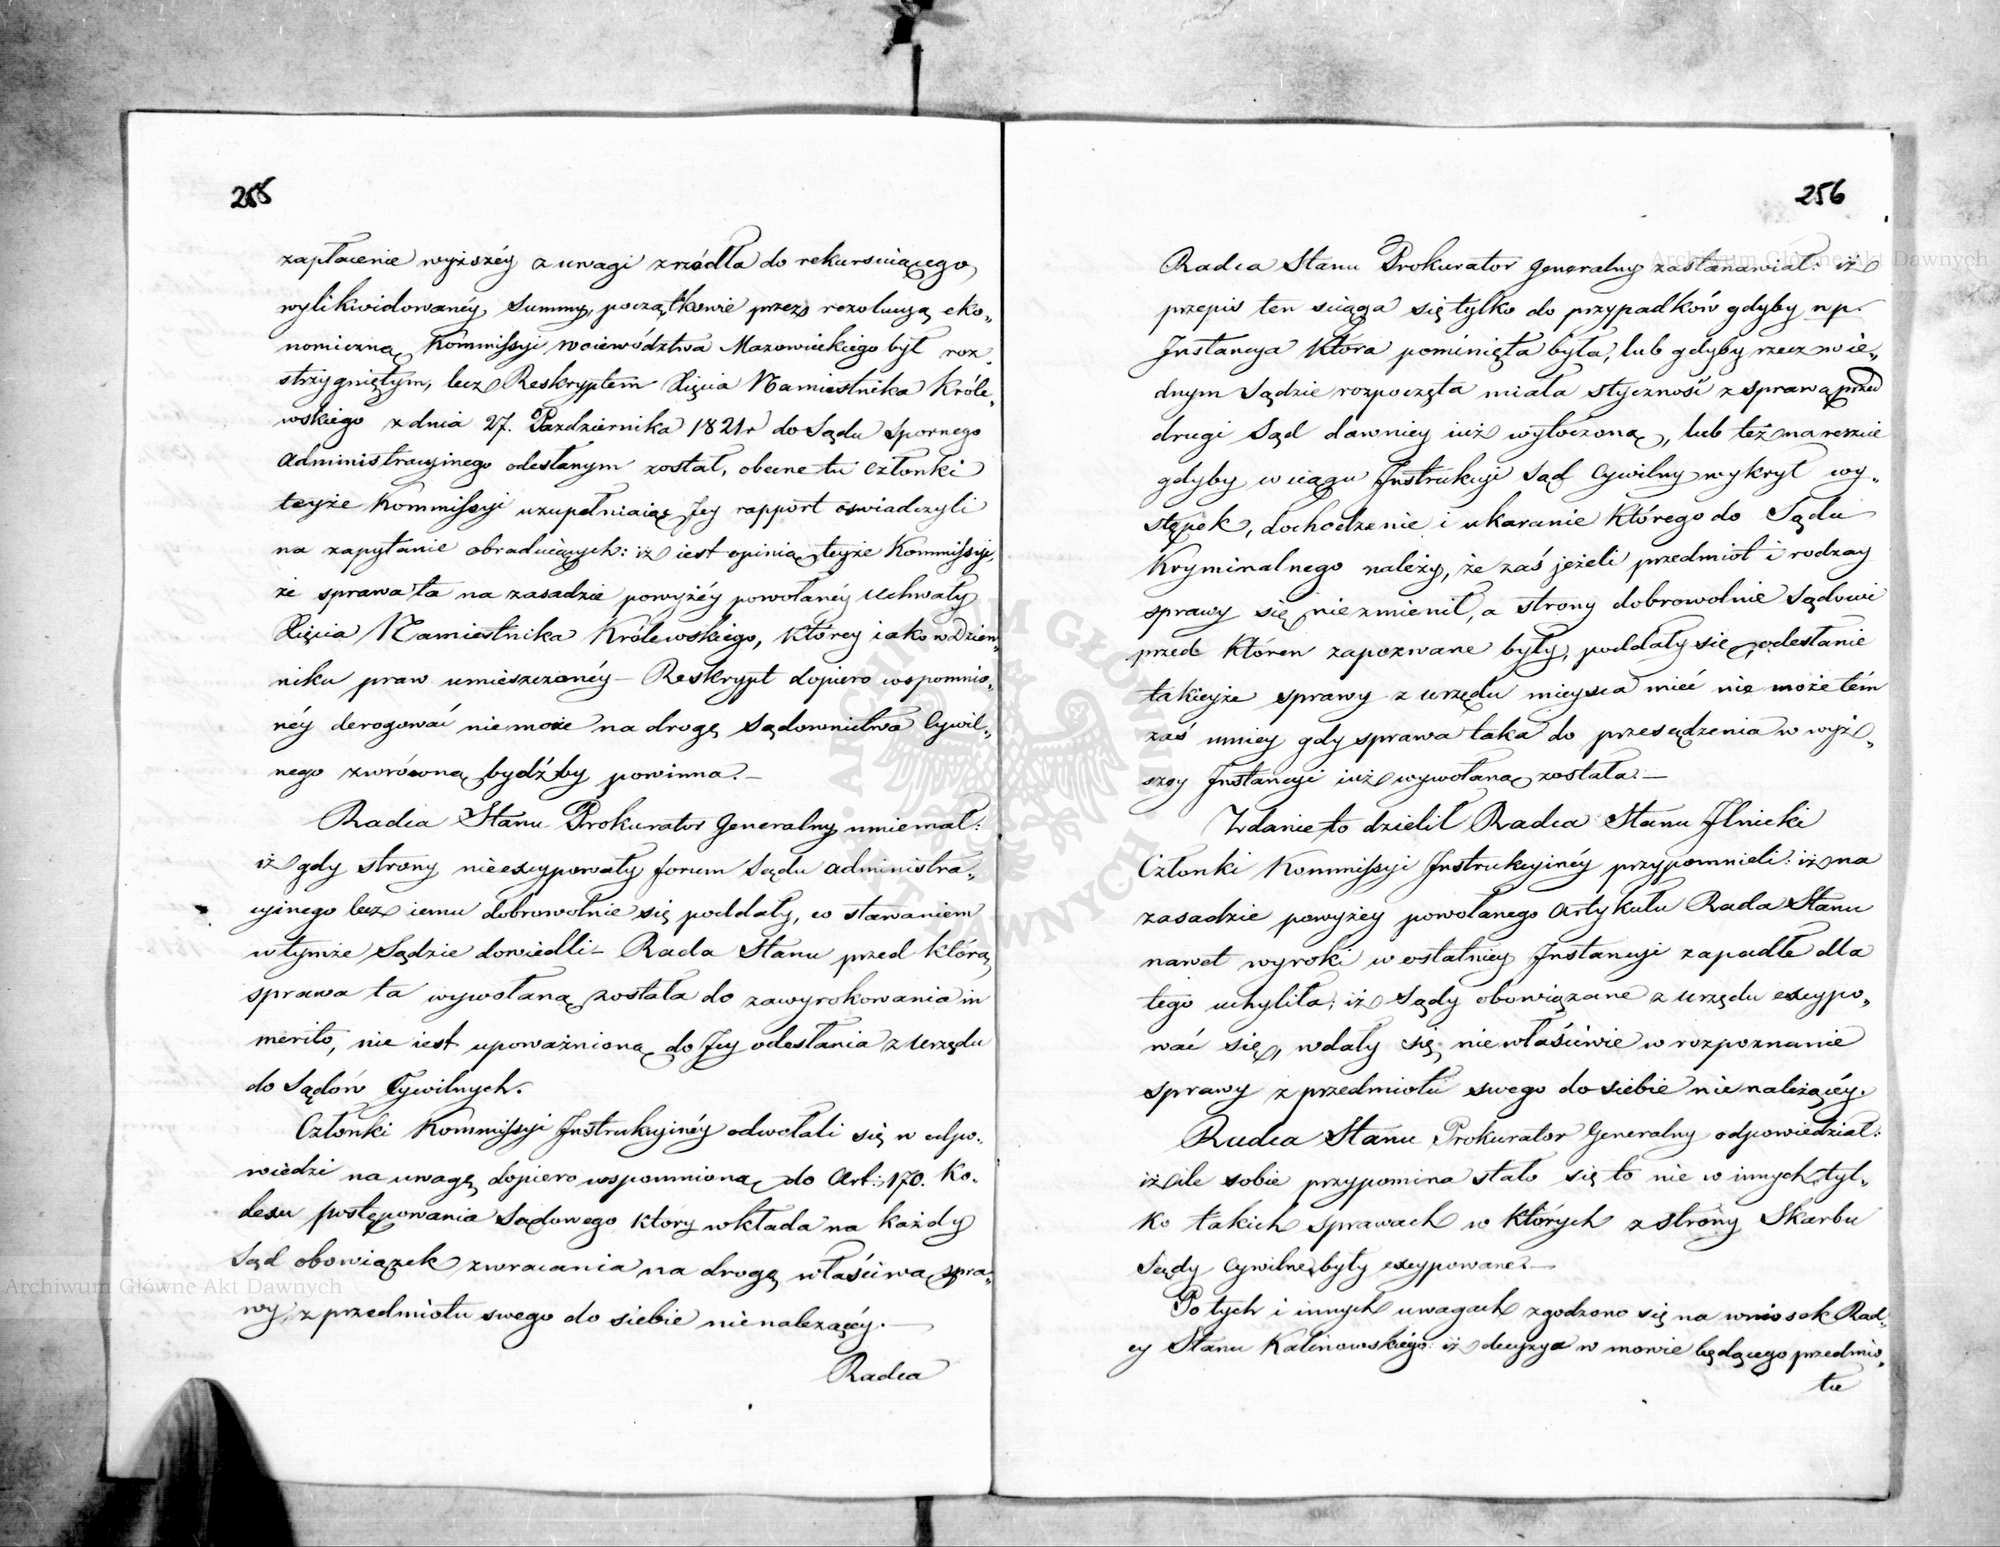 255
zapłacenie wyższéy z uwagi zrzódła do rekursuiącego,
wylikwidowanéy, Summy, początkowie przez rezolucyą eko„
nomiczną Kommissyi Woiewództwa Mazowieckiego był roz„
strzygniętym, lecz Reskryptem Xięcia Namiestnika Króle„
wskiego z dnia 27. Pazdziernika 1821r do Sądu Spornego
Administracyinego odesłanym został, obecne tu Członki
teyże Kommissyi uzupełniaiąc Jey rapport oswiadczyli
na zapytanie obraduiących: iż iest opinią teyże Kommissyi,
że sprawa ta na zasadzie powyżéy powołanéy Uchwały
Xięcia Namiestnika Królewskiego, którey iako w Dzien„
niku praw umieszczonéy – Reskrypt dopiero wspomnio„
néy derogować nie może na drogę Sądownictwa Cywil„
nego zwróconą bydźby powinna. –
Radca Stanu Prokurator Generalny mniemał:
iż gdy strony nieexcypowały forum Sądu administra„
cyinego lecz iemu dobrowolnie się poddały, co stawaniem
w tymże Sądzie dowiedli – Rada Stanu przed którą
sprawa ta wywołaną została do zawyrokowania in
merito, nie iest upoważnioną do Jey odesłania z Urzędu
do Sądów Cywilnych.
Członki Kommissyi Instrukcyinéy odwołali się w odpo„
wiedzi na uwagę dopiero wspomnioną do Art: 170. Ko„
dexu postępowania Sądowego który wkłada na każdy
Sąd obowiązek zwracania na drogę właściwą spra„
wy z przedmiotu swego do siebie nienależącéy. –
Radca
256
Radca Stanu Prokurator Generalny zastanawiał: iż
przepis ten sciąga się tylko do przypadków gdyby np.
Instancya która pominięta była, lub gdyby rzecz w ie„
dnym Sądzie rozpoczęta miała styczność z sprawą przed
drugi Sąd dawniey iuż wytoczoną, lub też nareszcie
gdyby w ciągu Instrukcyi Sąd Cywilny wykrył wy„
stępek, dochodzenie i ukaranie którego do Sądu
Kryminalnego należy, że zaś jeżeli przedmiot i rodzay
sprawy się niezmienił, a strony dobrowolnie Sądowi
przed którem zapozwane były, poddały się, odesłanie
takieyże sprawy z urzędu mieysca mieć nie może tém
zaś mniey gdy sprawa taka do przesądzenia w wyż„
szey Instancyi iuż wywołaną została. –
Zdanie to dzielił Radca Stanu Ilnicki
Członki Kommissyi Instrukcyinéy przypomnieli: iż na
zasadzie powyżey powołanego Artykułu Rada Stanu
nawet wyroki w ostatniey Instancyi zapadłe dla
tego uchyliła, iż Sądy obowiązane z urzędu excypo„
wać się, wdały się niewłaściwie w rozpoznanie
sprawy z przedmiotu swego do siebie nienależącéy.
Radca Stanu Prokurator Generalny odpowiedział:
iż ile sobie przypomina stało się to nie w innych tyl„
ko takich sprawach w których z strony Skarbu
Sądy Cywilne były excypowane. –
Po tych i innych uwagach zgodzono się na wniosek Rad„
cy Stanu Kalinowskiego: iż decyzya w mowie będącego przedmio„
tu